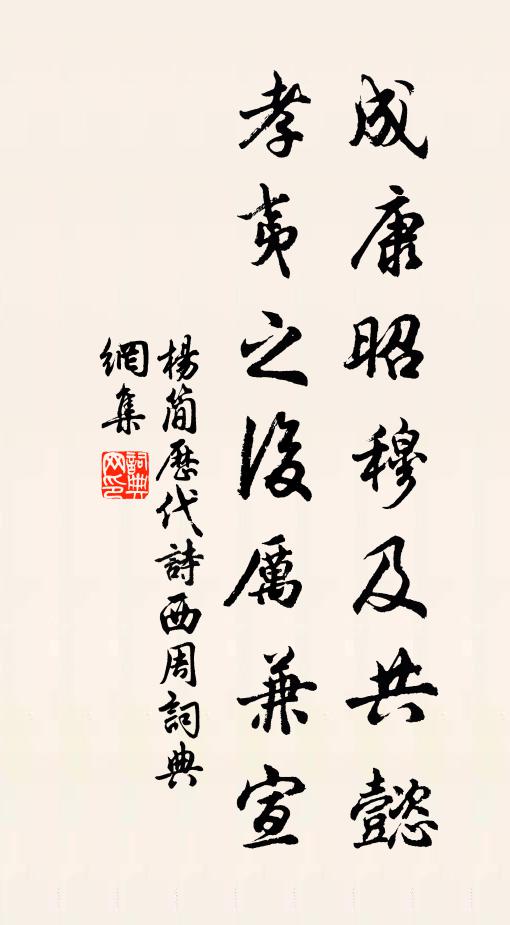 成康昭穆及共懿
孝夷之後厲兼宣
楊簡歷代詩西周詞典
網集
詞典網印